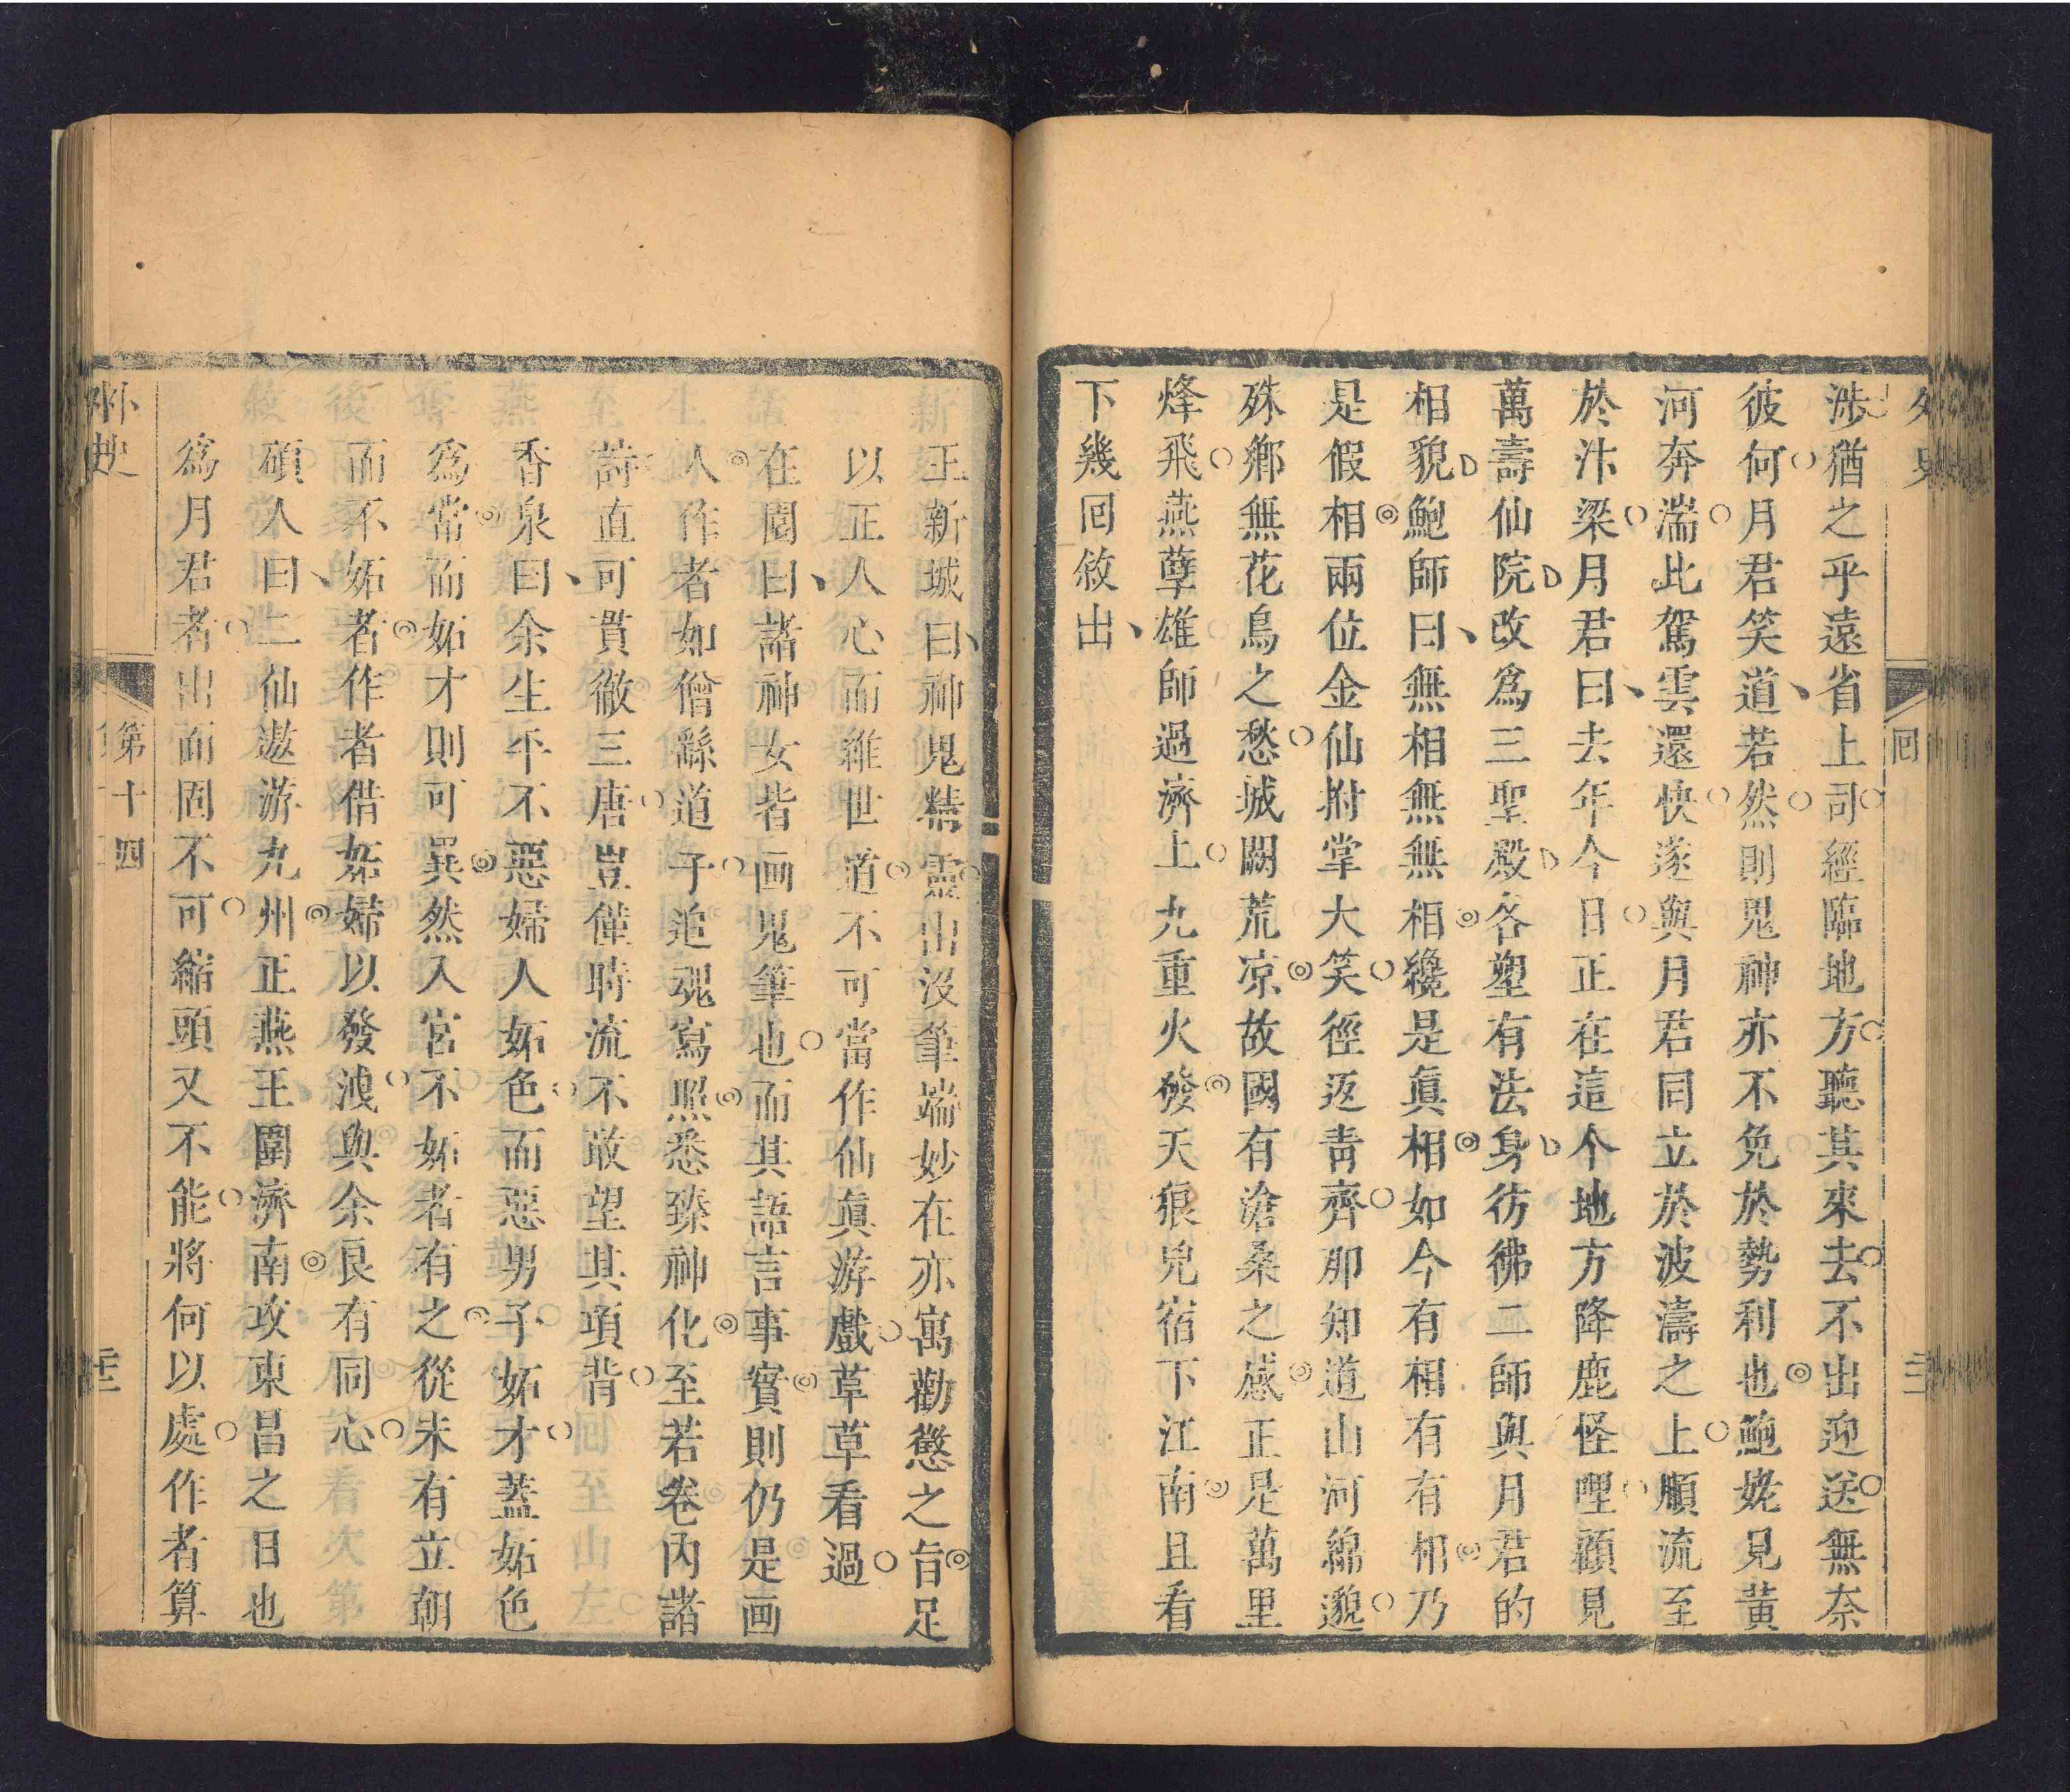 涉猶之乎遠省上司經臨地方聽其來去不出迎送無奈
彼何月君笑道若然則鬼神亦不免於勢利也鮑姥見黃
河奔湍此駕雲還快遂與月君同立於波濤之上順流至
於汴梁月君曰去年今日正在這个地方降鹿怪哩顧見
萬壽仙院改爲三聖殿各塑有法身彷彿二師與月君的
相貌鮑師曰無相無無相纔是眞相如今有相有有相乃
是假相兩位金仙拊掌大笑徑返靑齊那知道山河綿邈
殊鄉無花鳥之愁城闕荒凉故國有滄桑之感正是萬里
烽飛燕孽雄師過濟上九重火發天狼兇宿下江南且看
下幾囘敘出
王新城曰神鬼精靈出沒筆端妙在亦寓勸懲之旨足
以正人心而維世道不可當作仙眞游戲草草看過
在園曰諸神女皆画鬼筆也而其語言事實則仍是画
人作者如僧繇道子追魂寫照悉臻神化至若卷內諸
詩直可貫徹三唐豈僅時流不敢望其項背
香泉曰余生平不惡婦人妬色而惡男子妬才蓋妬色
爲常而妬才則可異然入宮不妬者有之從未有立朝
而不妬者作者借妬婦以發洩與余良有同心
碩人曰二仙遨游九州正燕王圍濟南攻東昌之日也
爲月君者出而固不可縮頭又不能將何以處作者算
外史
第十四